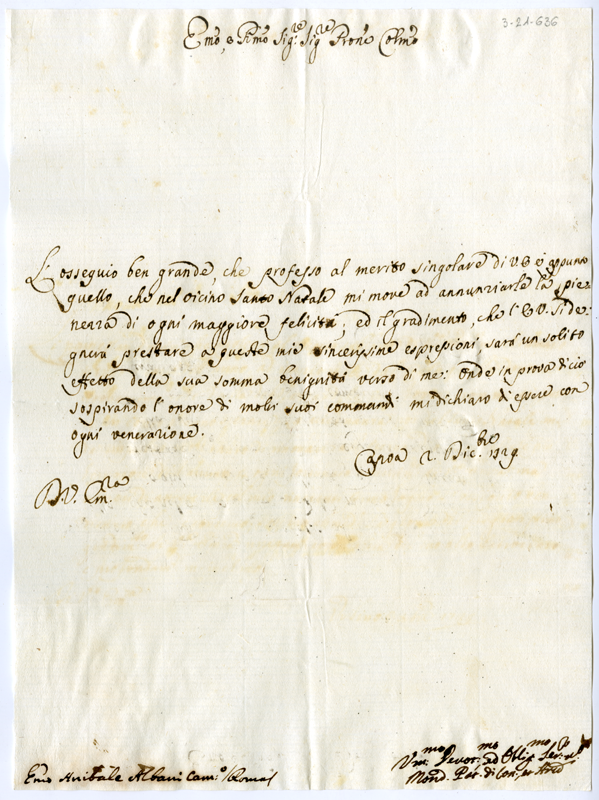 3-21-636
Emo, e Rmo Sigre Sigre Prone Colmo
L'ossequio ben grande, che professo al merito singolare di V.E. è appunto
quello, che nel vicino Santo Natale mi move ad annunziarle la pie-
nenza di ogni maggiore felicità; ed il gradimento, che l'E.V. si de-
gnerà prestare a queste mie sincerissime espressioni sarà un solito
effetto della sua somma benignità verso di me: Onde in prova di ciò
sospirando l'onore di molti suoi commandi mi dichiaro di essere con
ogni venerazione.
Capoa 2. Dicbre 1729
D.V. Emra
Vmo Devotmo ed Obligmo Serre
Emo Anibale Albani Camo (Roma)
Mond. Pat. di Con.